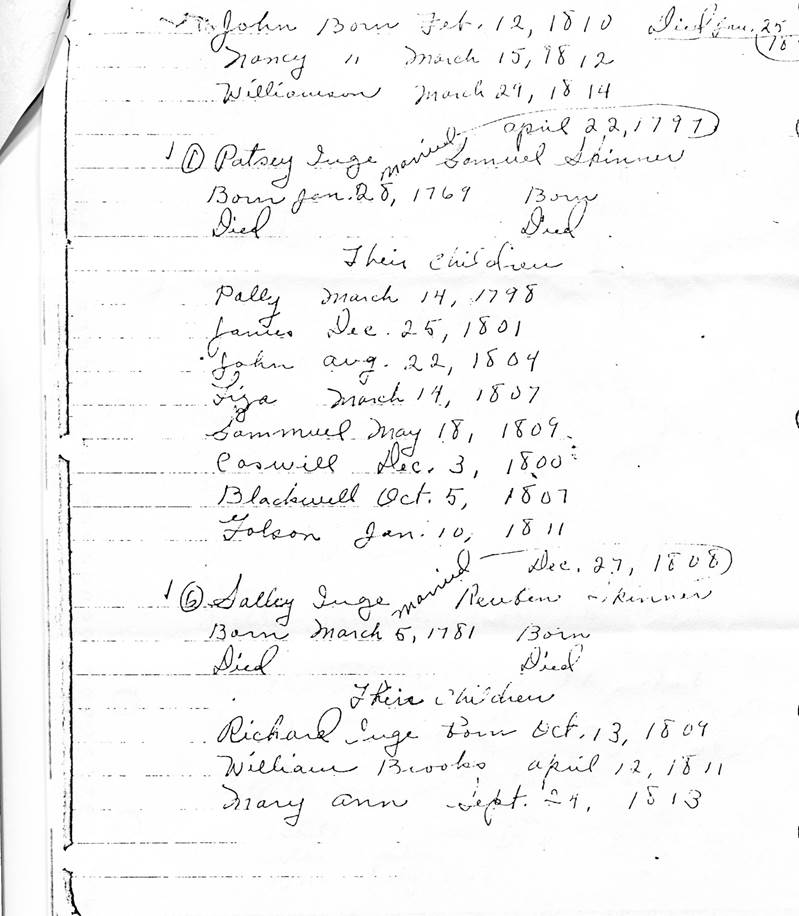 John Born Feb. 12, 1810 Died Jan. 25
18
Nancy " March 15, 1812
Williamson March 29, 1814
april 22, 1797
1 ① Patsey Inge married Samuel Skinner
Born Jan. 28, 1769 Born
Died Died
Their children
Polly March 14, 1798
James Dec. 25, 1801
John aug. 22, 1804
March 14, 1807
Sammuel May 18, 1809
Caswill Dec. 3, 1800
Blackwell Oct. 5, 1807
Folson Jan. 10, 1811
Dec. 27, 1808
1 ⑥ Salley Inge married Reuben Skinner
Born March 5, 1781 Born
Died Died
Their children
Richard Inge born Oct. 13, 1809
William Brooks april 12, 1811
Mary ann Sept. 24, 1813